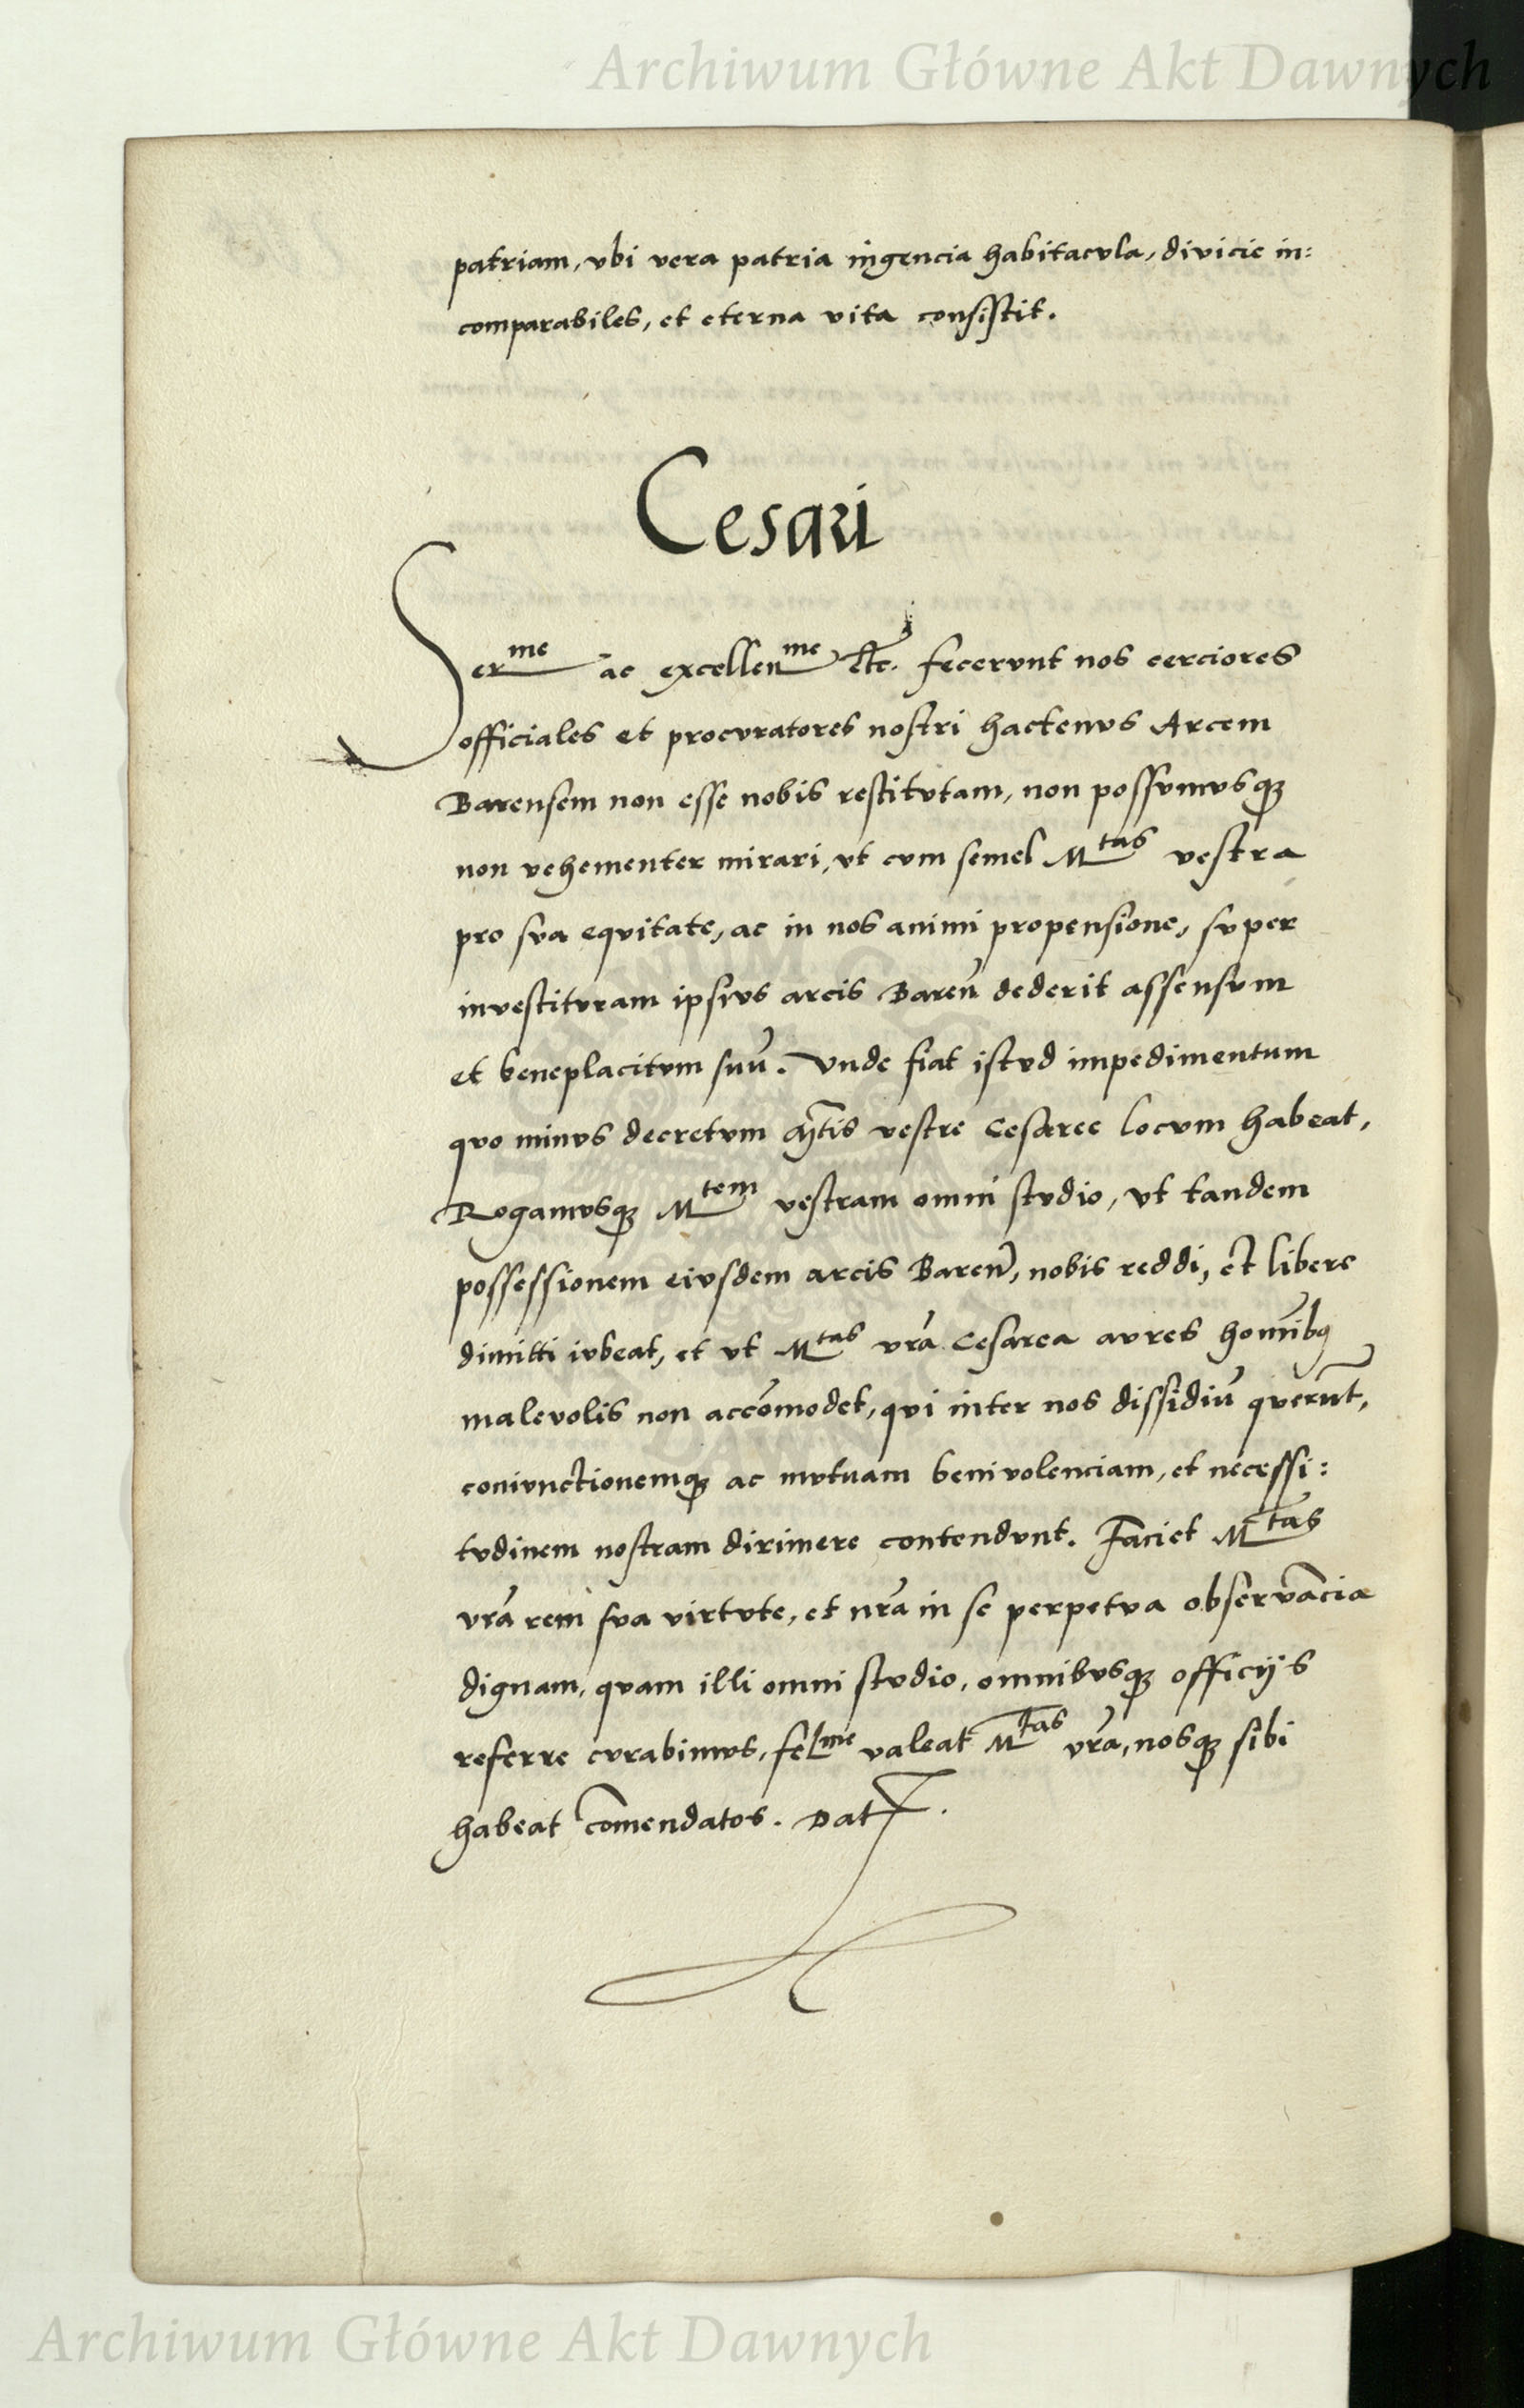 Archiwum Główne Akt Dawnych
patriam, vbi vera patria ingencia habitacvla, divicie in:
comparabiles, et eterna vita consistit.
Cesari
Serme ac excellenme etc. fecervnt nos cerciores
officiales et procvratores nostri hactenvs Arcem
Barensem non esse nobis restitvtam, non possvmvsqꝫ
non vehementer mirari, vt cvm semel Mtas vestra
pro sva eqvitate, ac in nos animi propensione, svper
investitvram ipsivs arcis Bareñ dederit assensvm
et beneplacitvm suū. Vnde fiat istvd impedimentum
qvo minvs decretvm Mtis vestre Cesaree locvm habeat,
Rogamvsqꝫ Mtem vestram omni stvdio, vt tandem
possessionem eivsdem arcis Bareñ, nobis reddi, et libere
dimitti ivbeat, et vt Mtas vrā Cesarea avres homībꝰ
malevolis non accōmodet, qvi inter nos dissidiū qverūt,
conivnctionemqꝫ ac mvtuam benivolenciam, et necessi:
tvdinem nostram dirimere contendvnt. Faciet Mtas
vrā rem sva virtvte, et nrā in se perpetva observācia
dignam, qvam illi omni stvdio, omnibvsqꝫ officijs
referre cvrabimvs, felme valeat Mtas vrā, nosqꝫ sibi
habeat cōmendatos. Dat.
Archiwum Główne Akt Dawnych